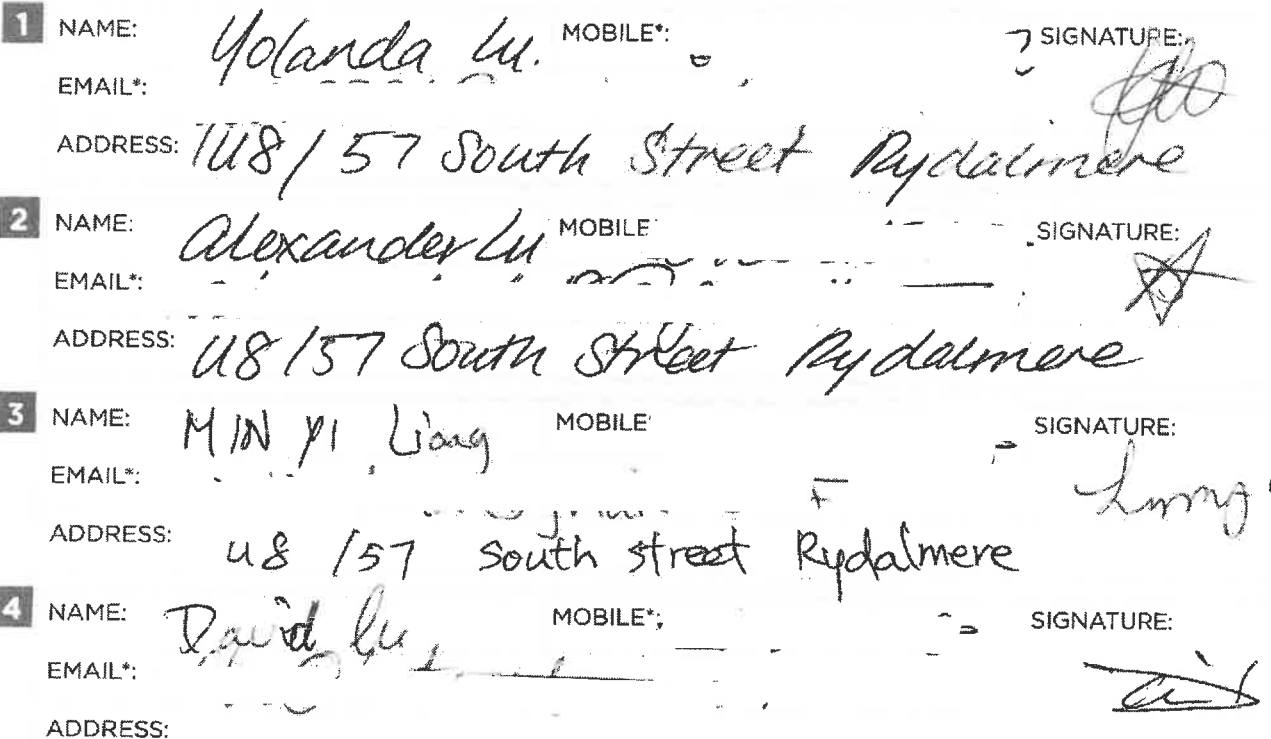 1 NAME: Yolanda Lu. MOBILE*: SIGNATURE:
EMAIL*:
ADDRESS: U8/57 South Street Rydalmere
2 NAME: Alexander Lu MOBILE SIGNATURE:
EMAIL*:
ADDRESS: U8/57 South Street Rydalmere
3 NAME: MIN YI Liang MOBILE SIGNATURE:
EMAIL*:
ADDRESS: U8/57 South street Rydalmere
4 NAME: David Lu MOBILE*: SIGNATURE:
EMAIL*:
ADDRESS: